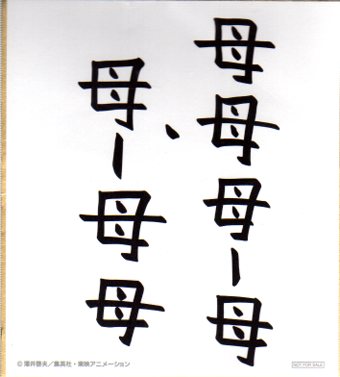 母母母ー母
・
母ー母母
© 澤井啓夫／集英社・東映アニメーション
NOT FOR SALE